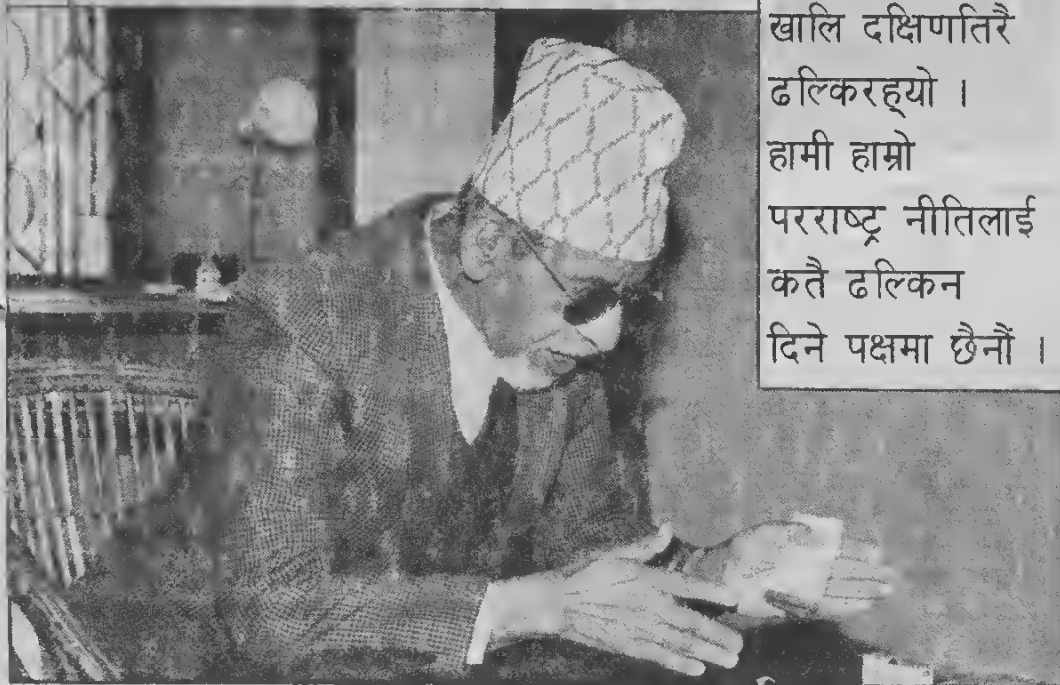 खालि दक्षिणतिरै
ढल्किरह्यो ।
हामी हाम्रो
परराष्ट्र नीतिलाई
कतै ढल्किन
दिने पक्षमा छैनौं ।